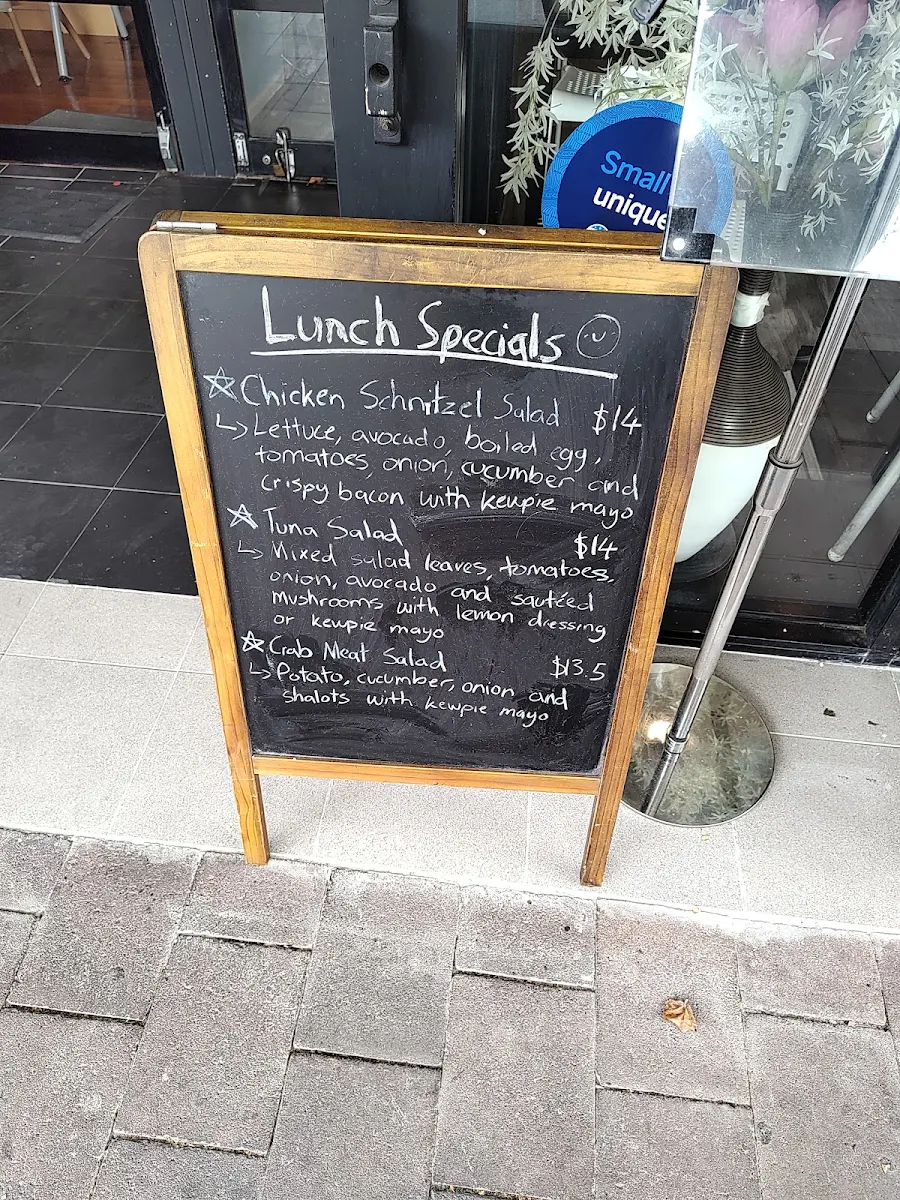 Small
unique
Lunch Specials
Chicken Schnitzel Salad $14
Lettuce, avocado, boiled egg,
tomatoes, onion, cucumber and
crispy bacon with kewpie mayo
Tuna Salad $14
Mixed salad leaves, tomatoes,
onion, avocado and sautéed
mushrooms with lemon dressing
or kewpie mayo
Crab Meat Salad $13.5
Potato, cucumber, onion and
shalots with kewpie mayo